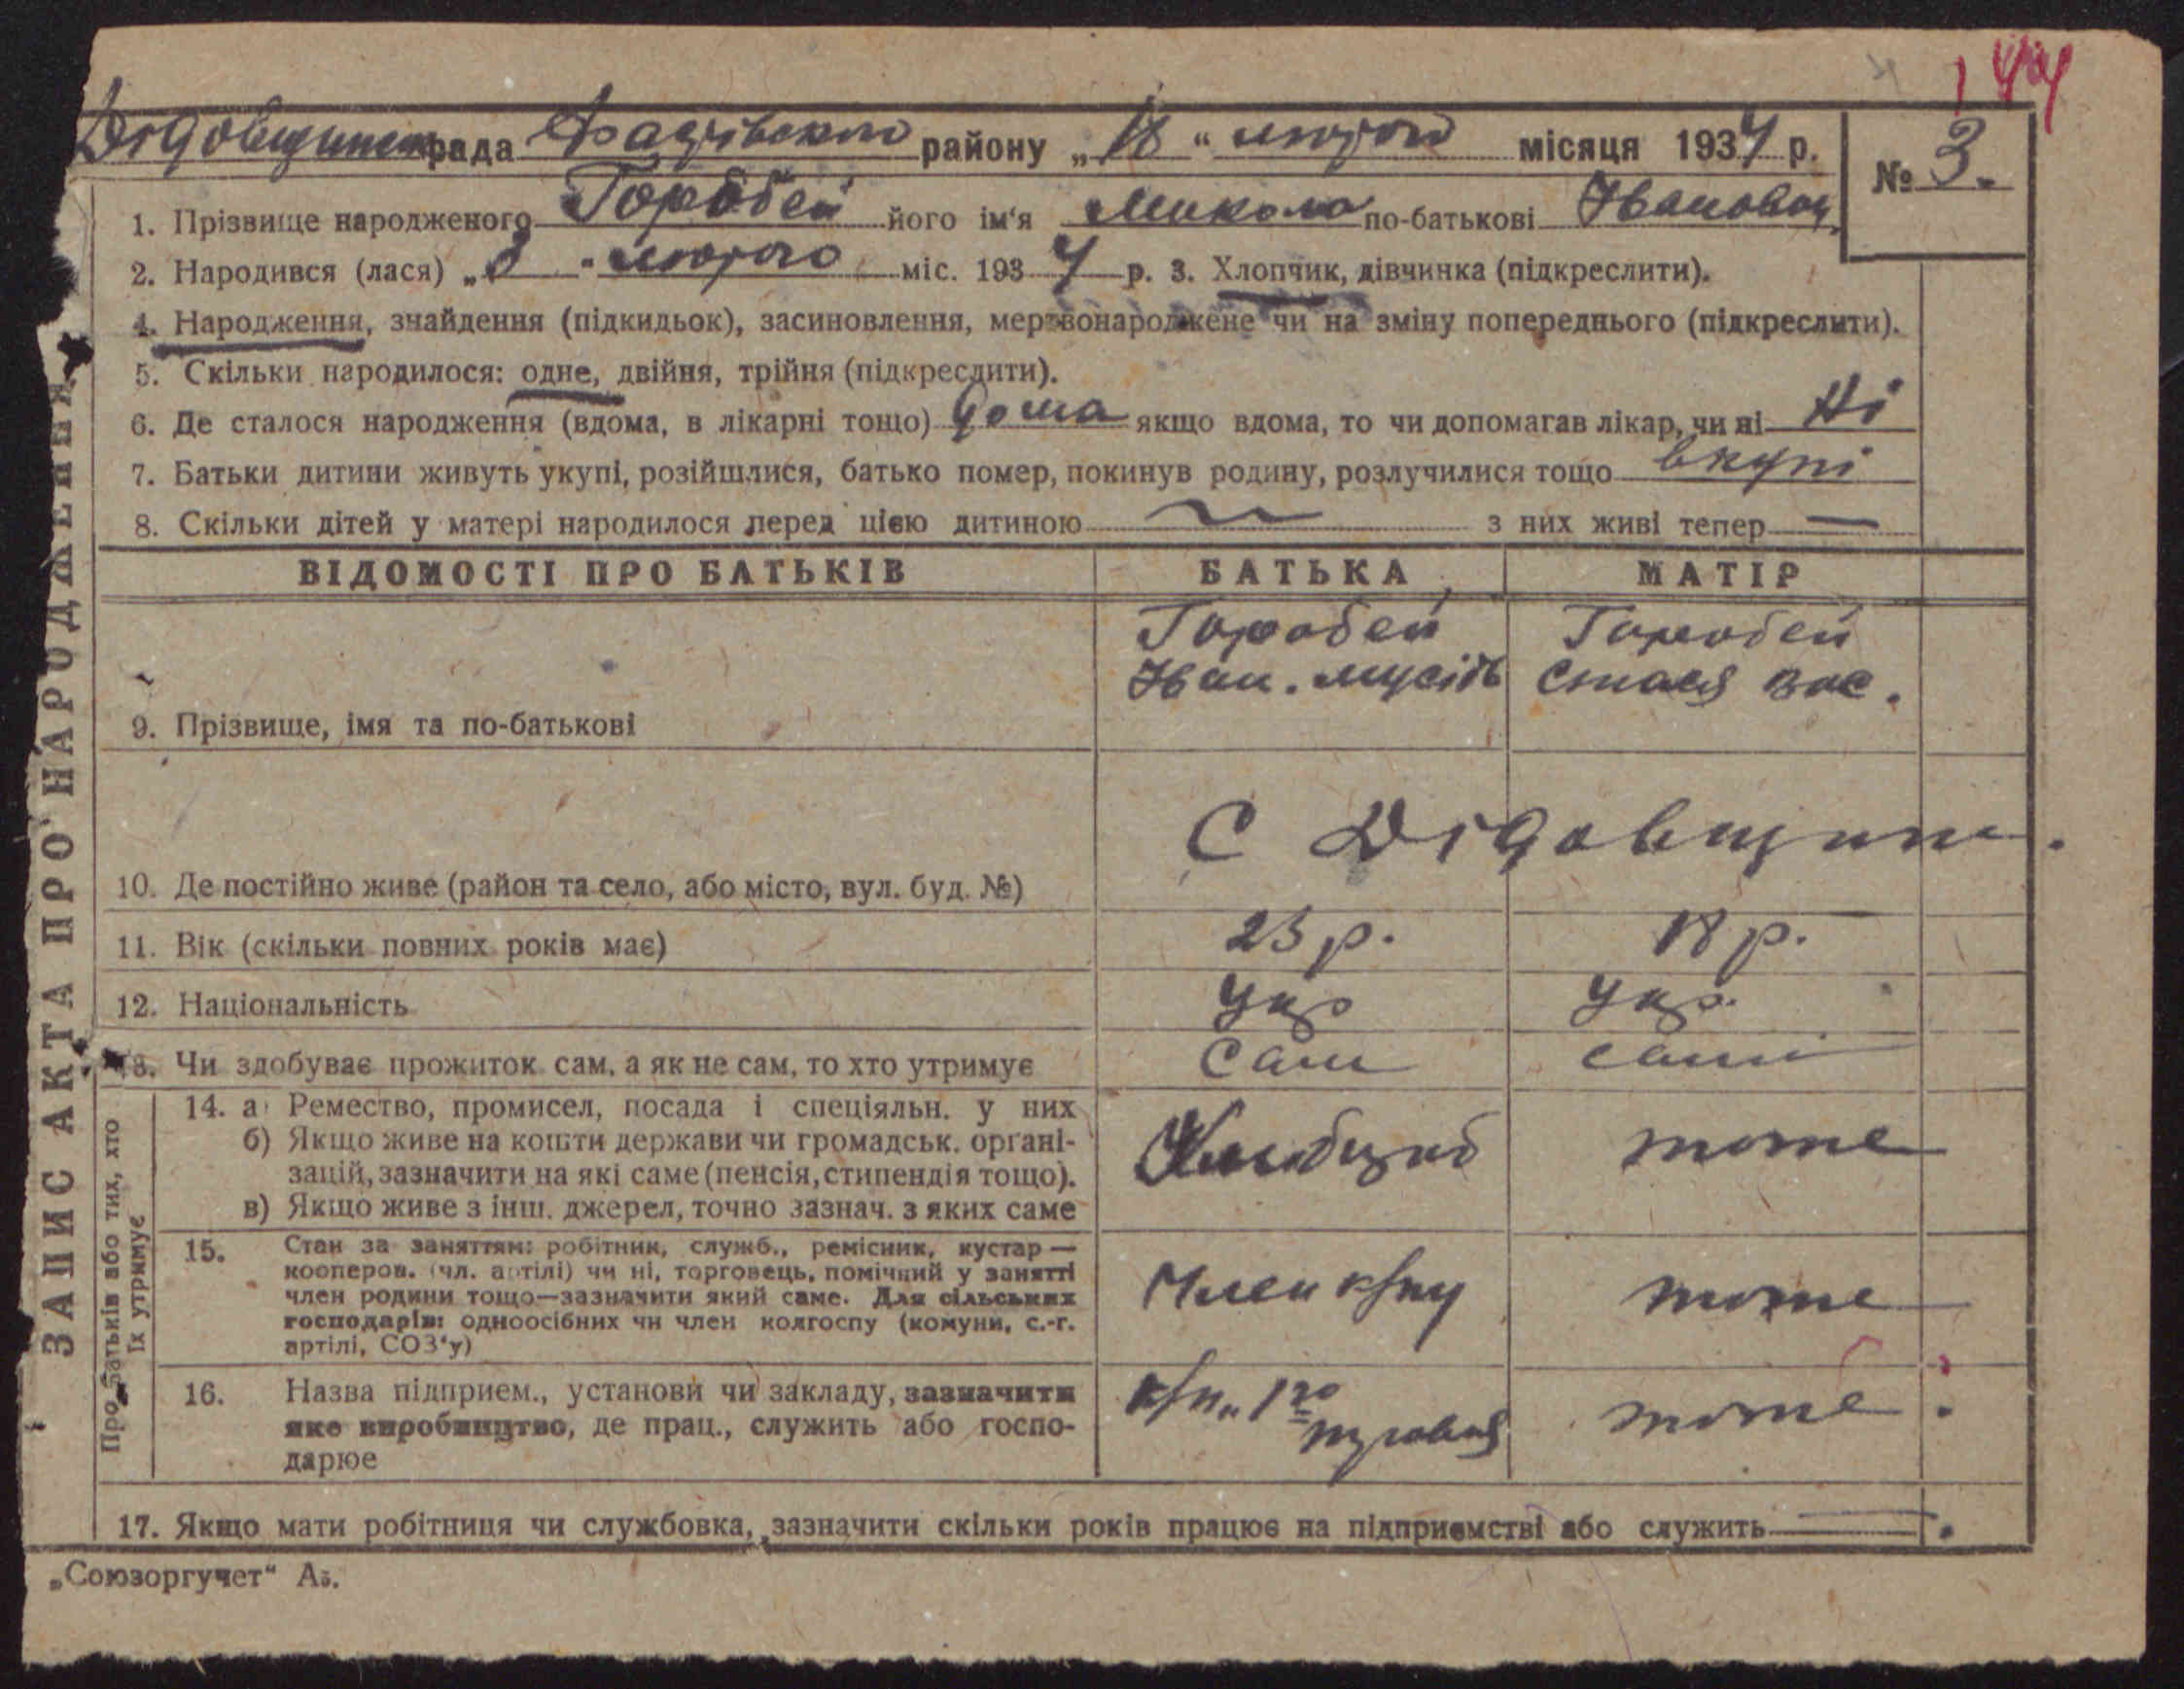 144
Дідовщинська рада Фастівського району „18“ лютого місяця 1934 р.
№ 3.
1. Прізвище народженого Горобей його ім‘я Микола по-батькові Іванович
2. Народився (лася) „8 “ лютого міс. 1934 р. 3. Хлопчик, дівчинка (підкреслити).
4. Народження, знайдення (підкидьок), засиновлення, мертвонароджене чи на зміну попереднього (підкреслити).
5. Скільки народилося: одне, двійня, трійня (підкреслити).
6. Де сталося народження (вдома, в лікарні тощо) дома якщо вдома, то чи допомагав лікар, чи ні Ні
7. Батьки дитини живуть укупі, розійшлися, батько помер, покинув родину, розлучилися тощо вкупі
8. Скільки дітей у матері народилося перед цією дитиною — з них живі тепер —
ВІДОМОСТІ ПРО БАТЬКІВ БАТЬКА МАТІР
Горобей Горобей
Іван. Мусієв Стася Вас.
9. Прізвище, імя та по-батькові
С Дідовщина.
10. Де постійно живе (район та село, або місто, вул. буд. №)
11. Вік (скільки повних років має) 23 р. 18 р.
12. Національність Укр Укр.
13. Чи здобуває прожиток сам, а як не сам, то хто утримує Сам сама
14. а) Ремество, промисел, посада і спеціяльн. у них
б) Якщо живе на кошти держави чи громадськ. орґані-
зацій, зазначити на які саме (пенсія, стипендія тощо).
в) Якщо живе з інш. джерел, точно зазнач. з яких саме
тоже
15. Стан за заняттям: робітник, служб., ремісник, кустар —
кооперов. (чл. артілі) чи ні, торговець, помічний у занятті
член родини тощо—зазначити який саме. Для сільських
господарів: одноосібних чи член колгоспу (комуни, с.-г.
артілі, СОЗ‘у)
Член к/гпу тоже
16. Назва підприєм., установи чи закладу, зазначити
яке виробництво, де прац., служить або госпо-
дарює
к/г „1го тоже
17. Якщо мати робітниця чи службовка, зазначити скільки років працює на підприємстві або служить —
„Союзоргучет“ Аз.
ЗАПИС АКТА ПРО НАРОДЖЕННЯ
Про батьків або тих, хто
їх утримує